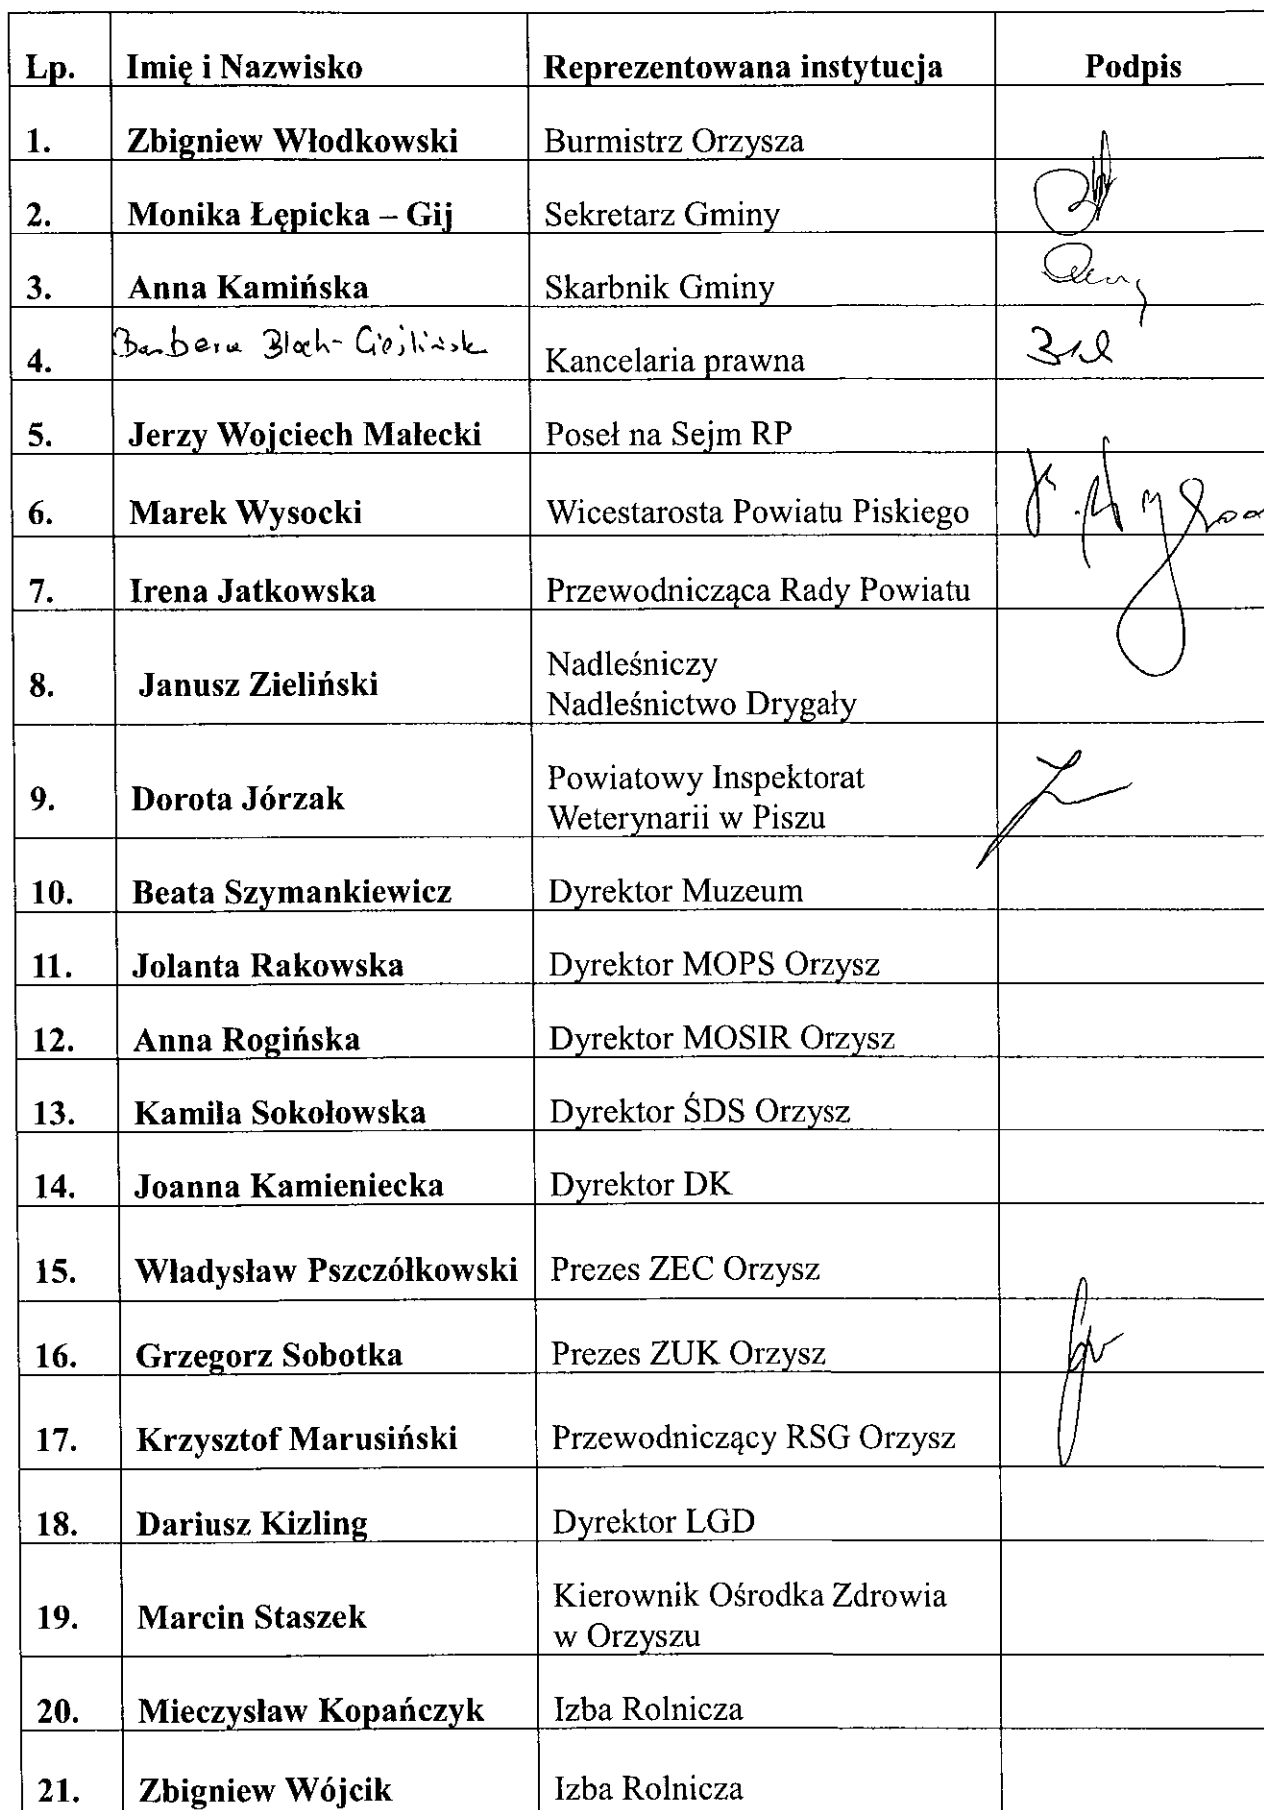 Lp. Imię i Nazwisko Reprezentowana instytucja Podpis
1. Zbigniew Włodkowski Burmistrz Orzysza
2. Monika Łępicka – Gij Sekretarz Gminy
3. Anna Kamińska Skarbnik Gminy
4. Barbara Bloch- Kancelaria prawna
5. Jerzy Wojciech Małecki Poseł na Sejm RP
6. Marek Wysocki Wicestarosta Powiatu Piskiego
7. Irena Jatkowska Przewodnicząca Rady Powiatu
8. Janusz Zieliński Nadleśniczy
Nadleśnictwo Drygały
9. Dorota Jórzak Powiatowy Inspektorat
Weterynarii w Piszu
10. Beata Szymankiewicz Dyrektor Muzeum
11. Jolanta Rakowska Dyrektor MOPS Orzysz
12. Anna Rogińska Dyrektor MOSIR Orzysz
13. Kamila Sokołowska Dyrektor ŚDS Orzysz
14. Joanna Kamieniecka Dyrektor DK
15. Władysław Pszczółkowski Prezes ZEC Orzysz
16. Grzegorz Sobotka Prezes ZUK Orzysz
17. Krzysztof Marusiński Przewodniczący RSG Orzysz
18. Dariusz Kizling Dyrektor LGD
19. Marcin Staszek Kierownik Ośrodka Zdrowia
w Orzyszu
20. Mieczysław Kopańczyk Izba Rolnicza
21. Zbigniew Wójcik Izba Rolnicza